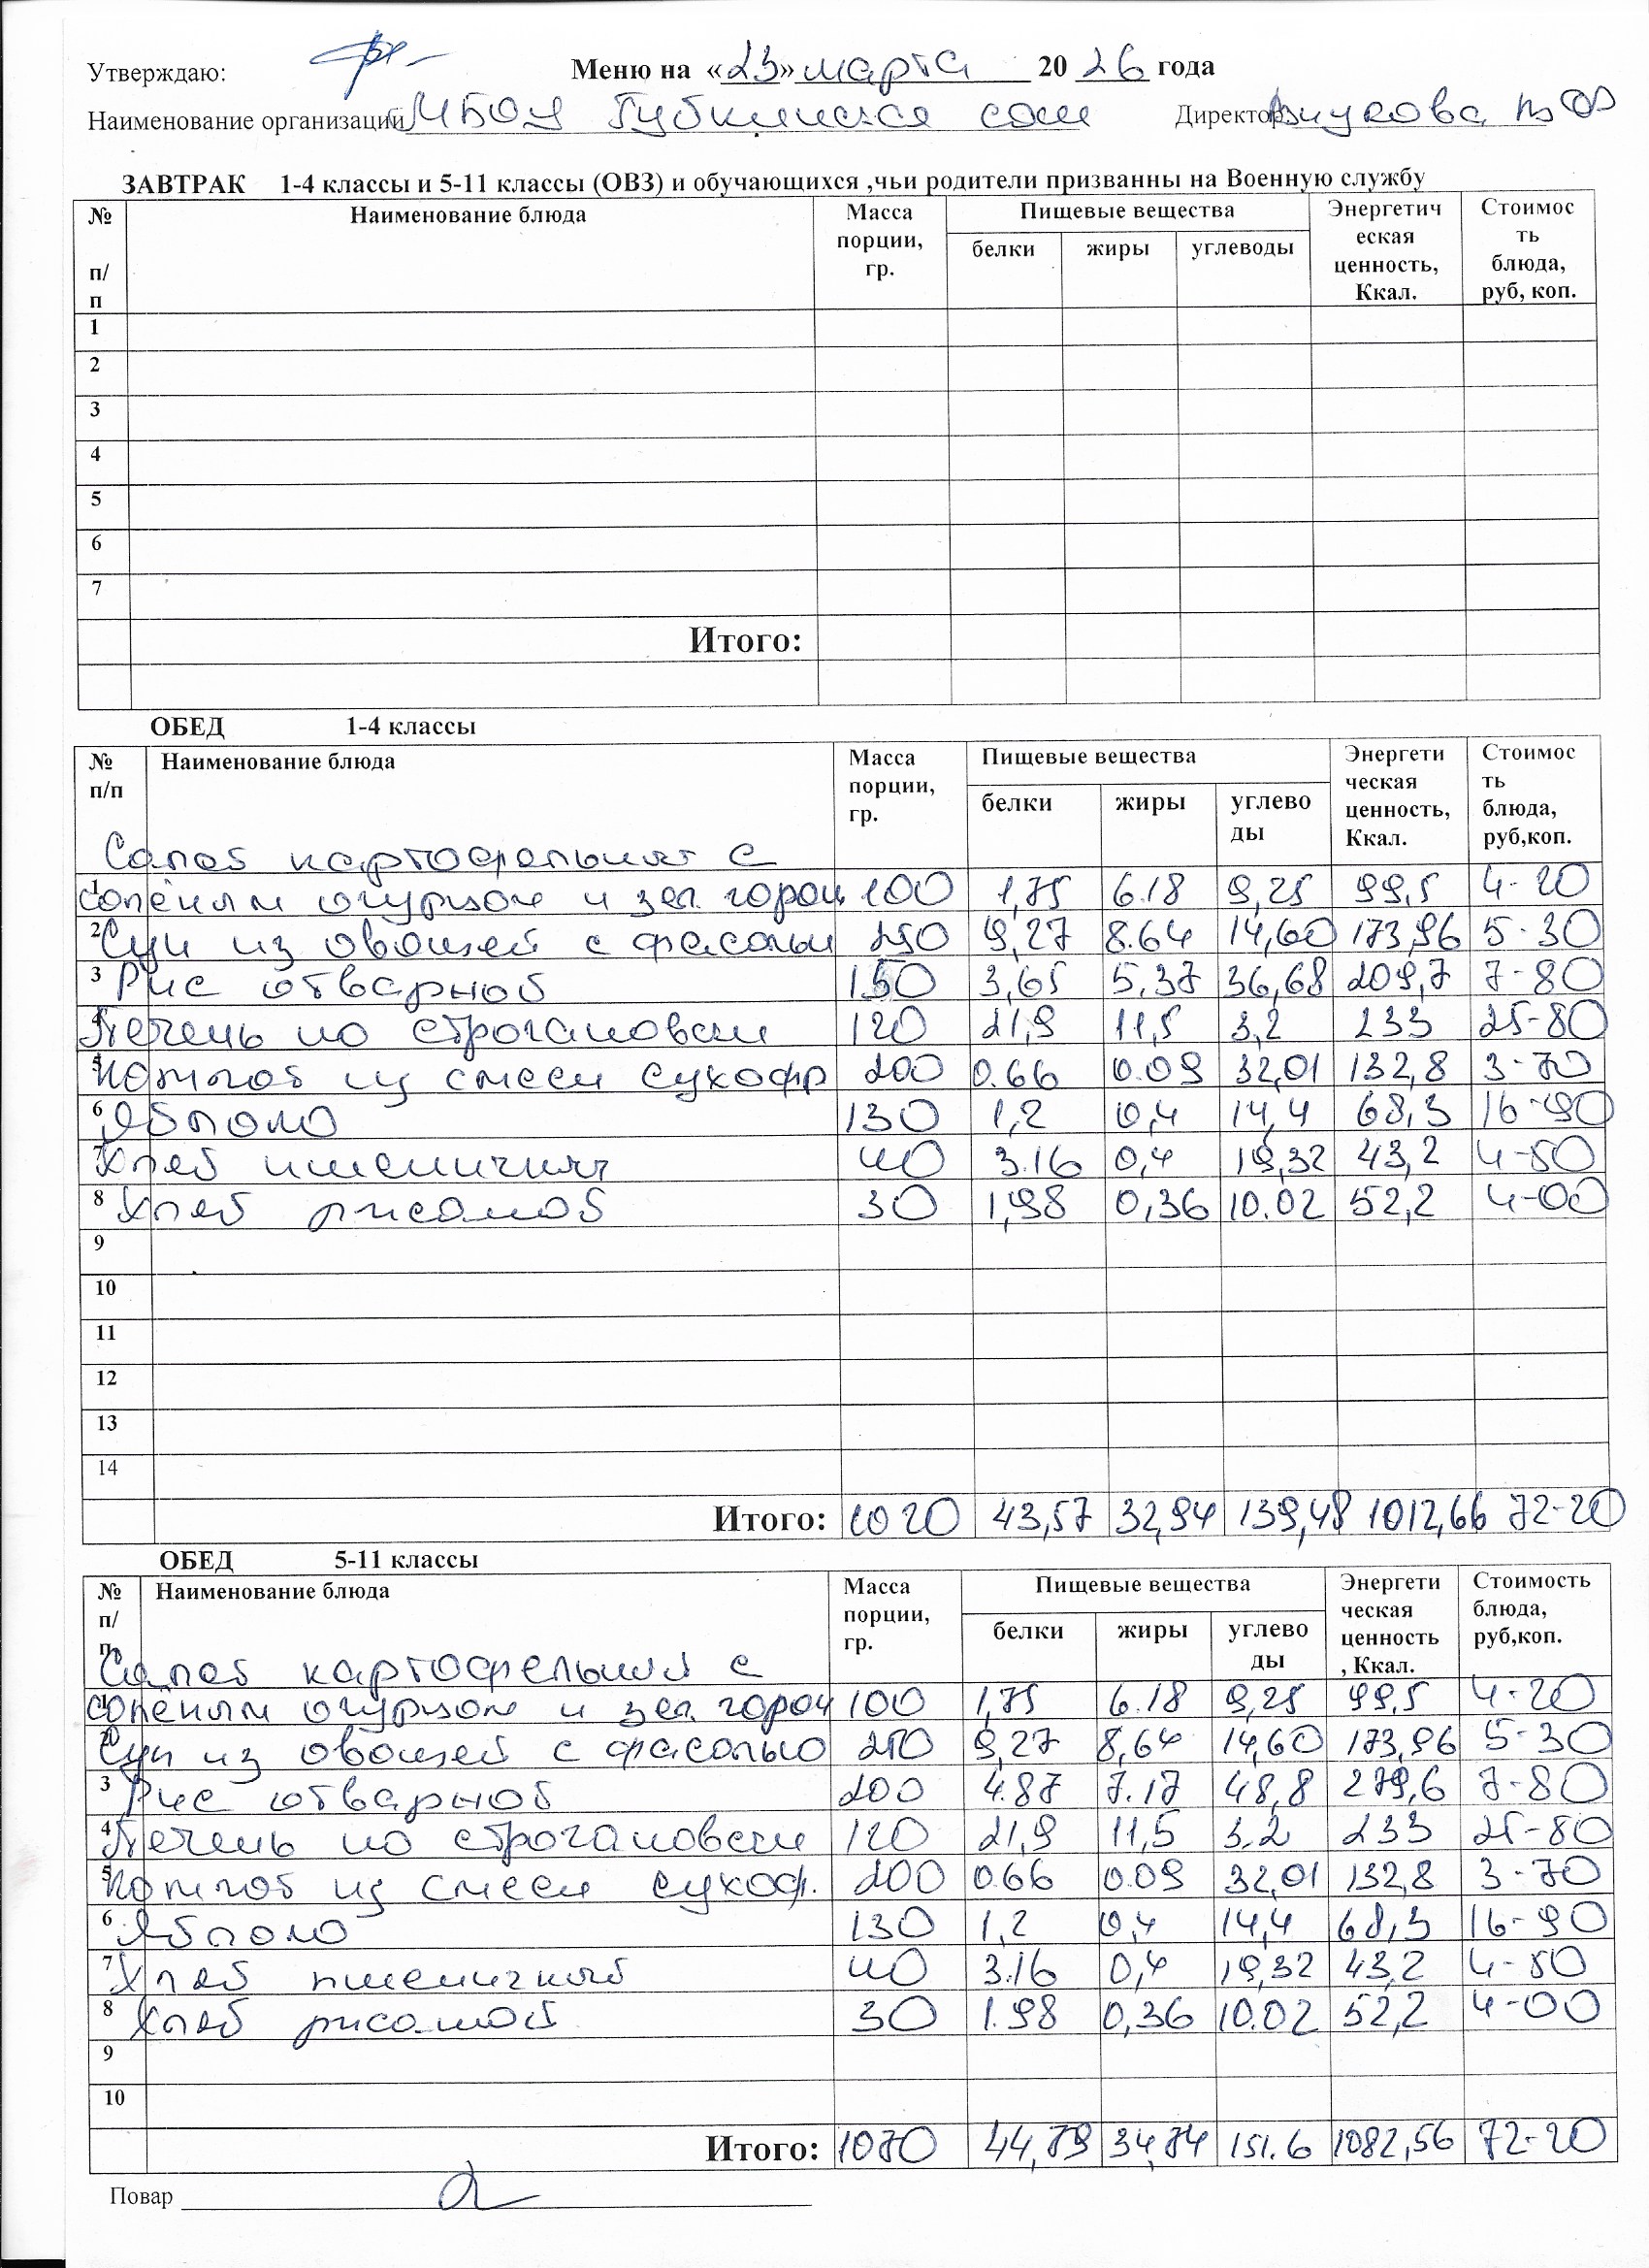 Утверждаю: Меню на «23» марта 2026 года
Наименование организации МБОУ Губкинская сош Директор
ЗАВТРАК 1-4 классы и 5-11 классы (ОВЗ) и обучающихся ,чьи родители призванны на Военную службу
№ п/п Наименование блюда Масса порции, гр. Пищевые вещества белки жиры углеводы Энергетическая ценность, Ккал. Стоимость блюда, руб, коп.
1
2
3
4
5
6
7
Итого:
ОБЕД 1-4 классы
№ п/п Наименование блюда Масса порции, гр. Пищевые вещества белки жиры углеводы Энергетическая ценность, Ккал. Стоимость блюда, руб,коп.
Салат картофельный с
1 солёным огурцом и зел. горош 100 1,75 6.18 9,25 99,5 4-20
2 Суп из овощей с фасолью 250 9,27 8.64 14,60 173,96 5-30
3 Рис отварной 150 3,65 5,37 36,68 209,7 7-80
4 Печень по строгановски 120 21,9 11,5 3,2 233 25-80
5 Компот из смеси сухофр 200 0.66 0.09 32,01 132,8 3-70
6 Яблоко 130 1,2 0,4 14,4 68,3 16-90
7 Хлеб пшеничный 40 3.16 0,4 19,32 43,2 4-50
8 Хлеб ржаной 30 1,98 0,36 10.02 52,2 4-00
9
10
11
12
13
14
Итого: 1020 43,57 32,94 139,48 1012,66 72-20
ОБЕД 5-11 классы
№ п/п Наименование блюда Масса порции, гр. Пищевые вещества белки жиры углеводы Энергетическая ценность, Ккал. Стоимость блюда, руб,коп.
Салат картофельный с
1 солёным огурцом и зел. гороч 100 1,75 6.18 9,25 99,5 4-20
2 Суп из овощей с фасолью 250 9,27 8,64 14,60 173,96 5-30
3 Рис отварной 200 4.87 7.17 48,8 279,6 7-80
4 Печень по строгановски 120 21,9 11,5 3.2 233 25-80
5 Компот из смеси сухоф. 200 0.66 0.09 32,01 132,8 3-70
6 Яблоко 130 1,2 0,4 14,4 68,3 16-90
7 Хлеб пшеничный 40 3.16 0,4 19,32 43,2 4-50
8 Хлеб ржаной 30 1.98 0,36 10.02 52,2 4-00
9
10
Итого: 1070 44,79 34,74 151.6 1082,56 72-20
Повар